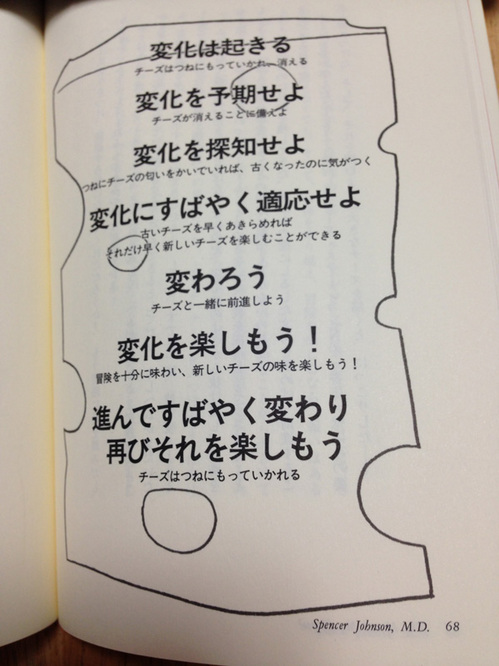 変化は起きる
チーズはつねにもっていかれ、消える
変化を予期せよ
チーズが消えることに備えよ
変化を探知せよ
つねにチーズの匂いをかいでいれば、古くなったのに気がつく
変化にすばやく適応せよ
古いチーズを早くあきらめれば
それだけ早く新しいチーズを楽しむことができる
変わろう
チーズと一緒に前進しよう
変化を楽しもう！
冒険を十分に味わい、新しいチーズの味を楽しもう！
進んですばやく変わり
再びそれを楽しもう
チーズはつねにもっていかれる
Spencer Johnson, M.D. 68